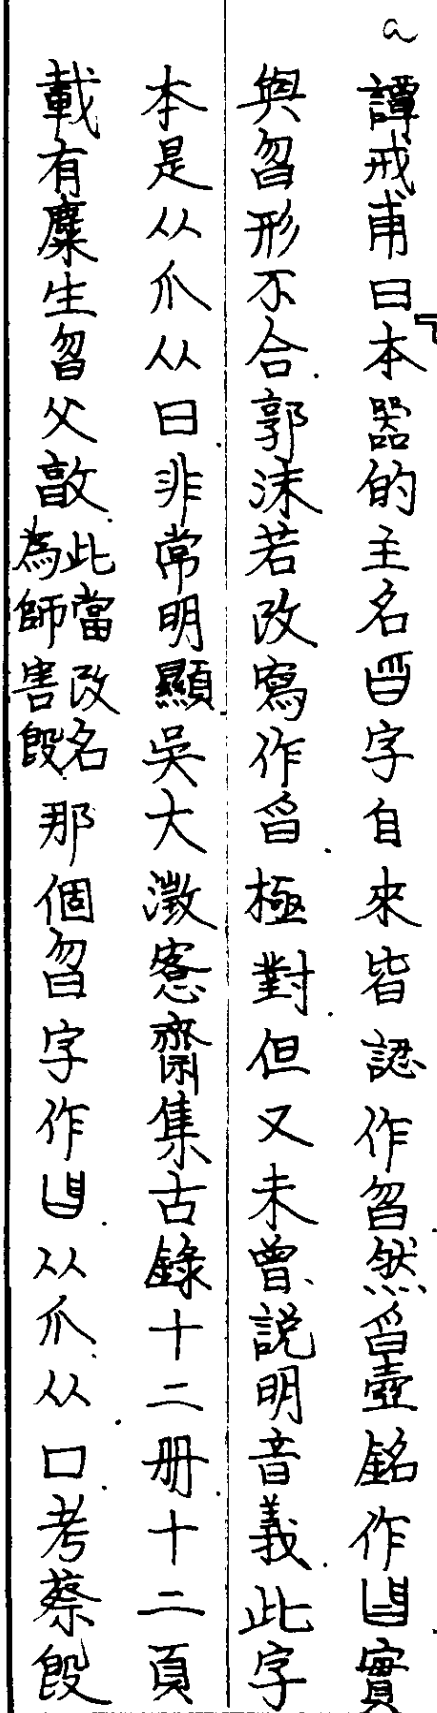 a
譚戒甫曰本器的主名字自來皆認作曶然舀壺銘作實
與曶形不合郭沫若改寫作舀極對但又未曾說明音義此字
本是从爪从曰非常明顯吳大澂愙齋集古錄十二册十二頁
載有麋生曶父敦此當改名為師害毁那個曶字作从爪从口考蔡毁